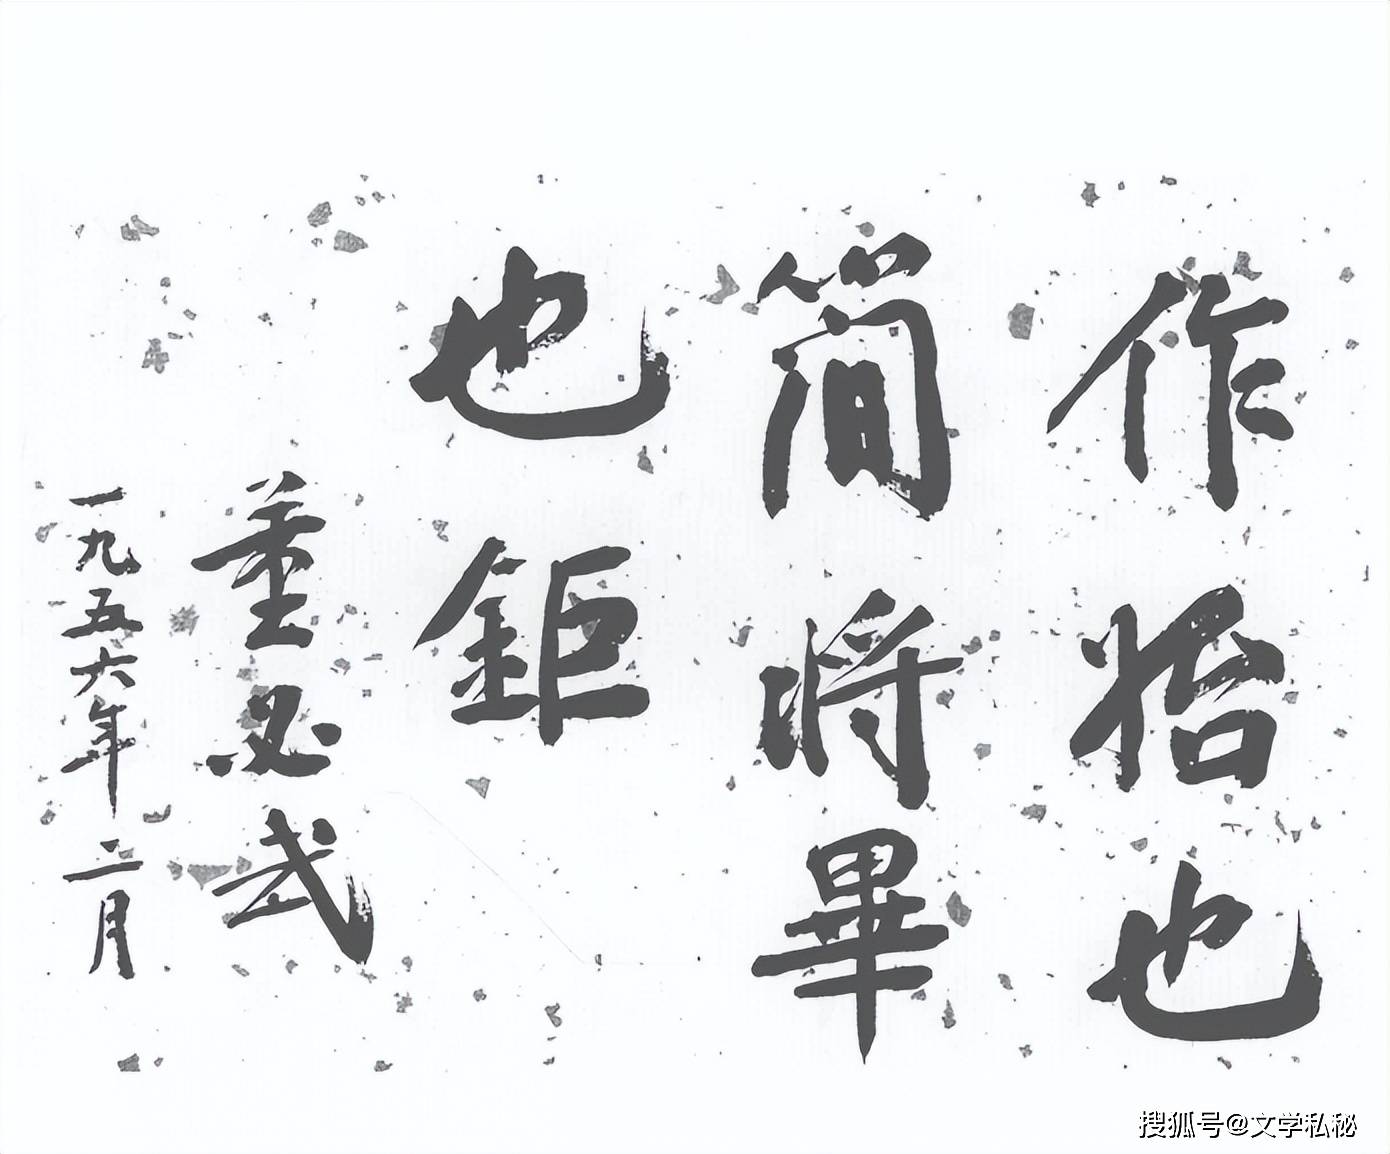 作始也
簡将畢
也鉅
董必武
一九五六年二月
搜狐号@文学私秘